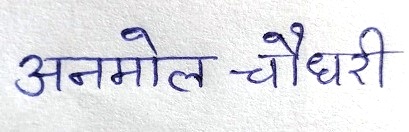 अनमोल चौधरी